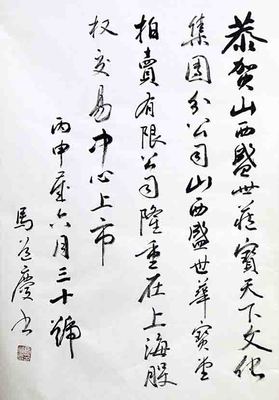 恭贺山西盛世藏寳天下文化
集團分公司山西盛世華寳堂
拍賣有限公司隆重在上海股
权交易中心上市
丙申年六月三十號
馬慶书